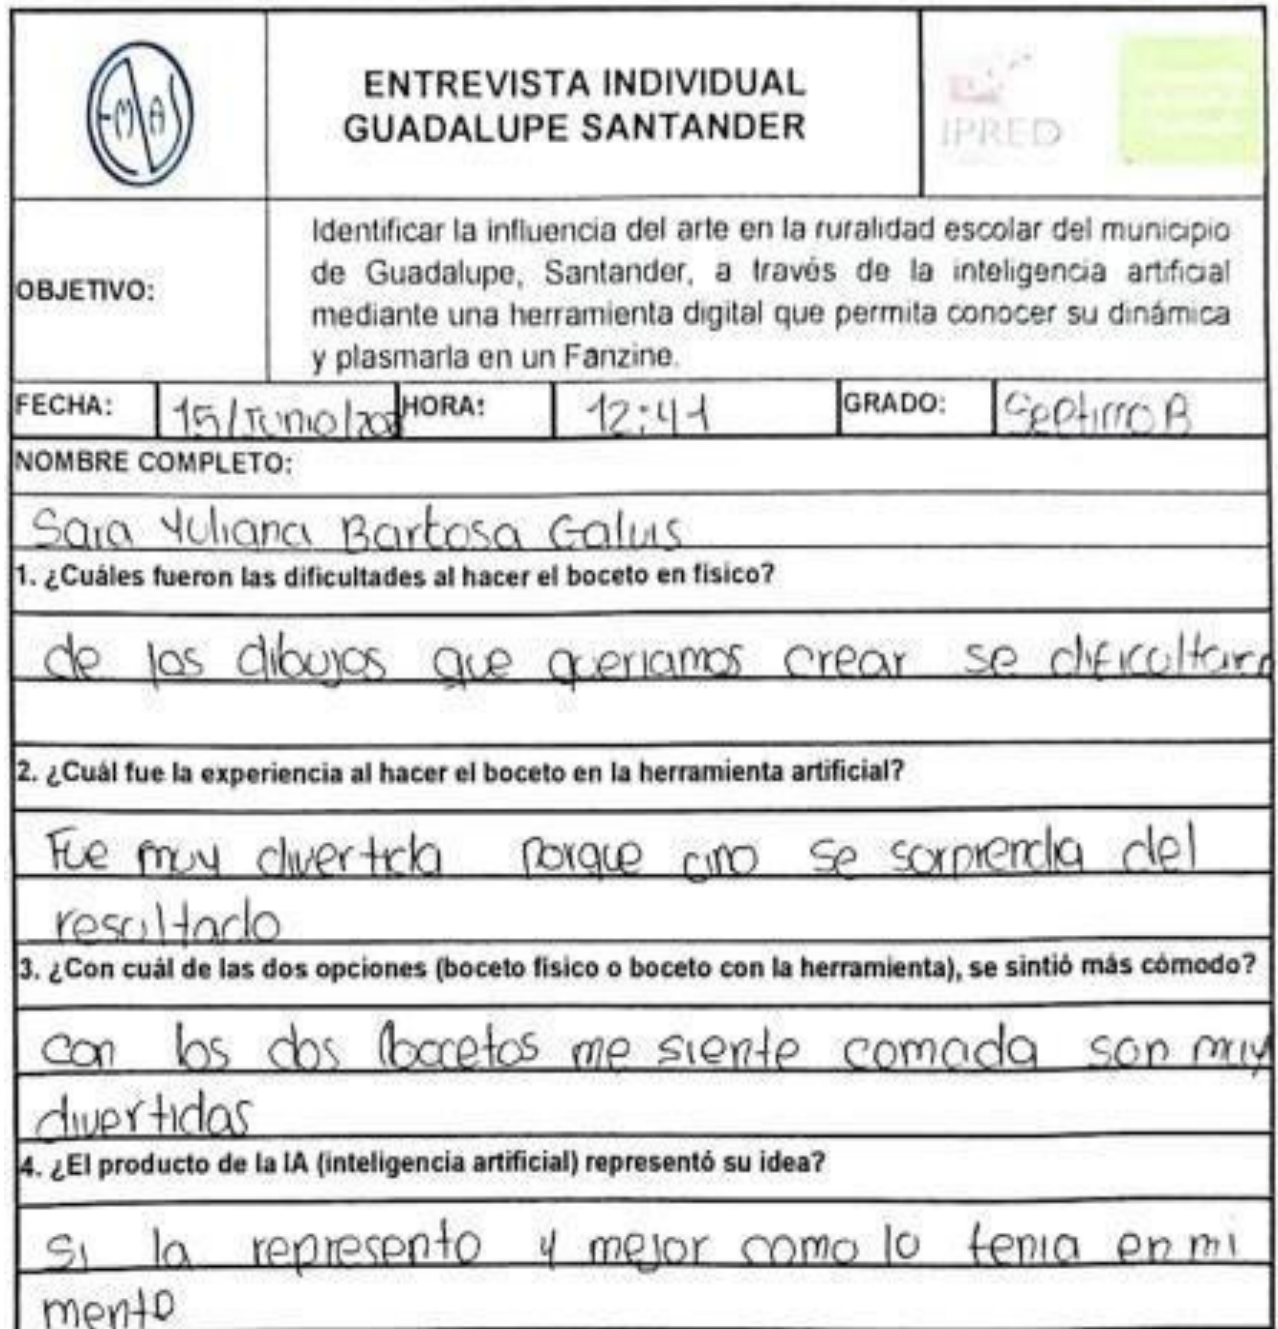 EMAS
ENTREVISTA INDIVIDUAL
GUADALUPE SANTANDER
IPRED
OBJETIVO:
Identificar la influencia del arte en la ruralidad escolar del municipio
de Guadalupe, Santander, a través de la inteligencia artificial
mediante una herramienta digital que permita conocer su dinámica
y plasmarla en un Fanzine.
FECHA: 15/Junio/202 HORA: 12:41 GRADO: Septimo B
NOMBRE COMPLETO:
Sara Yuliana Barbosa Galvis
1. ¿Cuáles fueron las dificultades al hacer el boceto en físico?
de los dibujos que queriamos crear se dificultara
2. ¿Cuál fue la experiencia al hacer el boceto en la herramienta artificial?
Fue muy divertida porque uno se sorprendia del
resultado
3. ¿Con cuál de las dos opciones (boceto físico o boceto con la herramienta), se sintió más cómodo?
con los dos bocetos me siente comoda son muy
divertidos
4. ¿El producto de la IA (inteligencia artificial) representó su idea?
si la represento y mejor como lo tenia en mi
mente